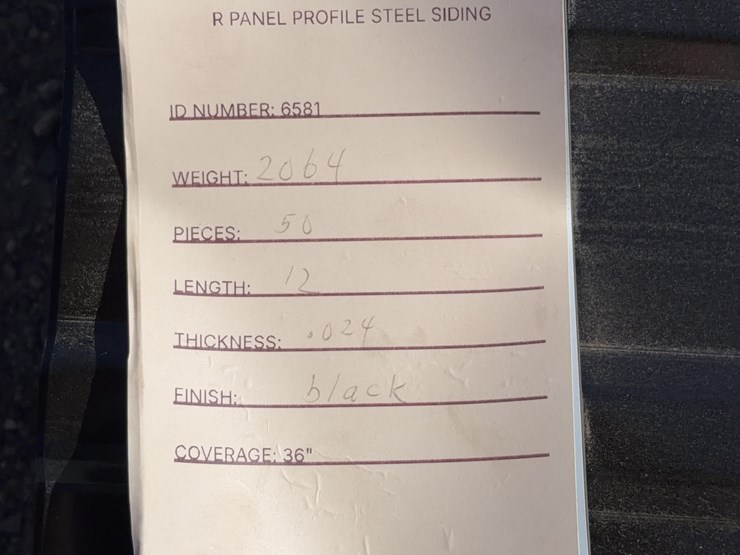 R PANEL PROFILE STEEL SIDING
ID NUMBER: 6581
WEIGHT: 2064
PIECES: 50
LENGTH: 12
THICKNESS: .024
FINISH: black
COVERAGE: 36"